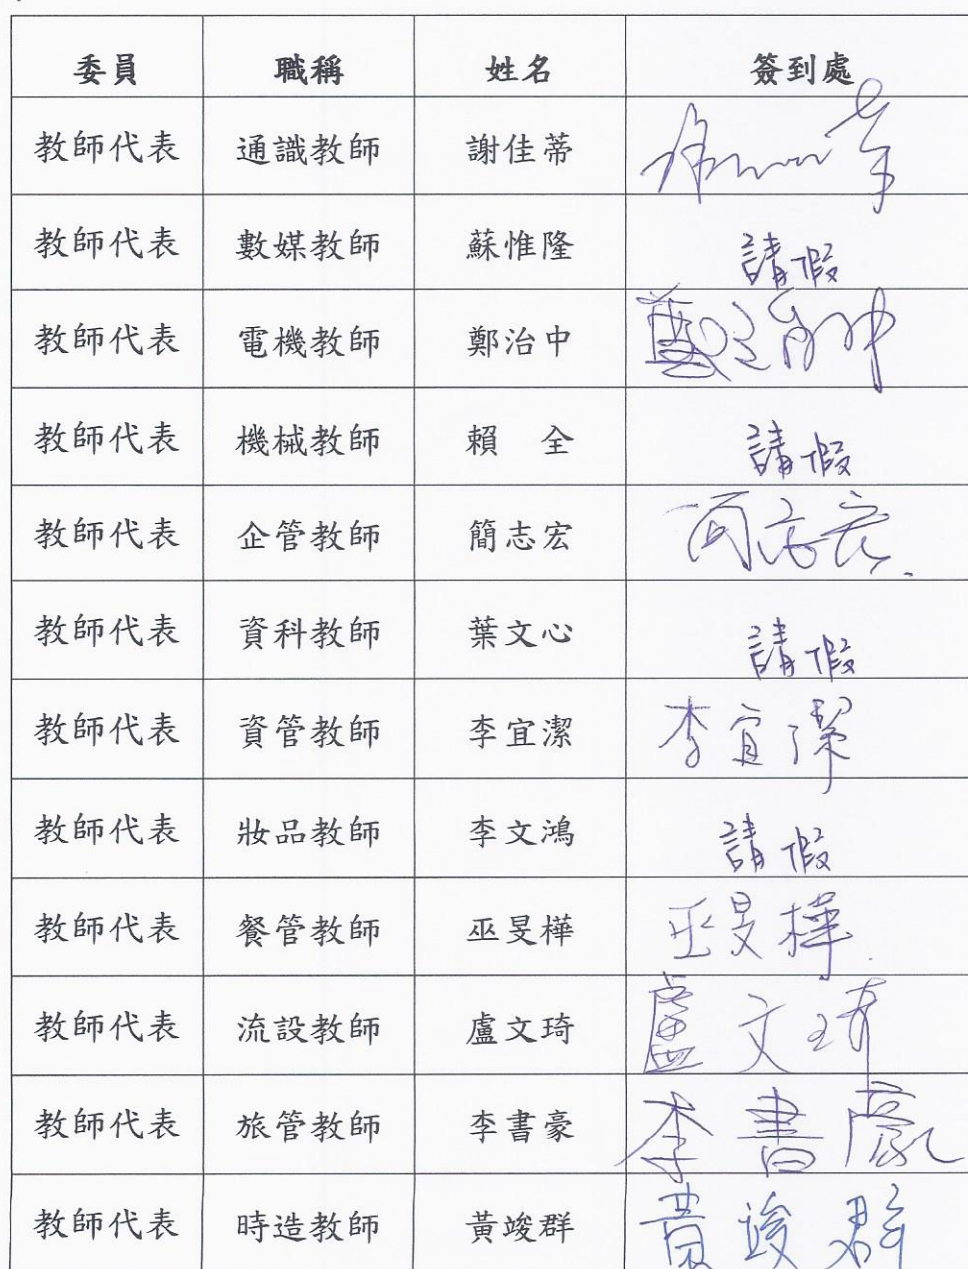 委員 職稱 姓名 簽到處
教師代表 通識教師 謝佳蒂
教師代表 數媒教師 蘇惟隆 請假
教師代表 電機教師 鄭治中 鄭治中
教師代表 機械教師 賴 全 請假
教師代表 企管教師 簡志宏 简志宏
教師代表 資科教師 葉文心 請假
教師代表 資管教師 李宜潔 李宜潔
教師代表 妝品教師 李文鴻 請假
教師代表 餐管教師 巫旻樺 巫旻樺
教師代表 流設教師 盧文琦 盧文琦
教師代表 旅管教師 李書豪 李書豪
教師代表 時造教師 黃竣群 黃竣群